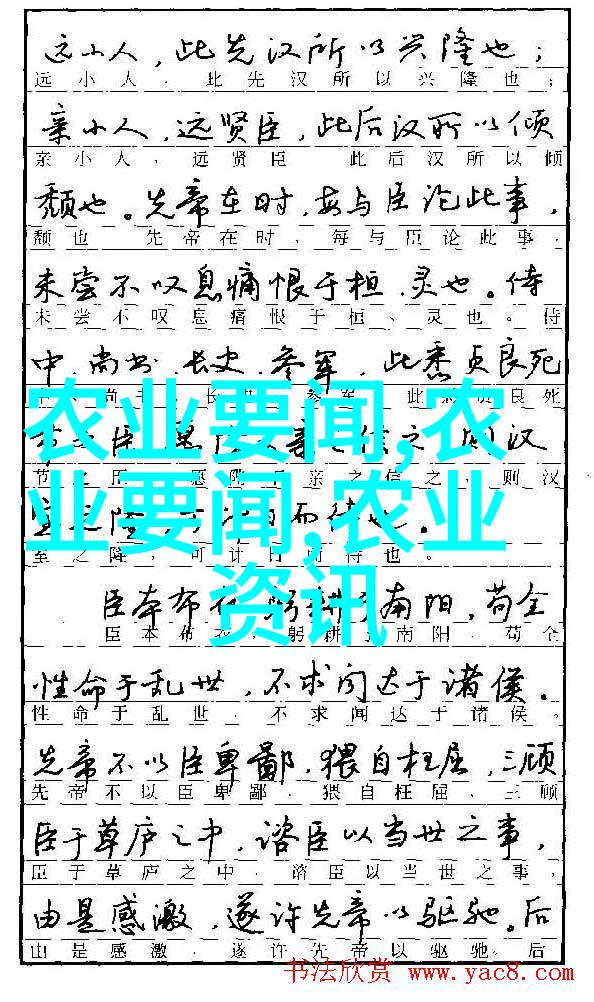 远小人，此先汉所以兴隆也；
远小人，此先汉所以兴隆也；
亲小人，远贤臣，此后汉所以倾
亲小人，远贤臣 此后汉所以倾
颓也。先帝在时，每与臣论此事，
颓也 先帝在时，每与臣论此事，
未尝不叹息痛恨于桓、灵也。侍
未尝不叹息痛恨于桓、灵也。侍
中、尚书、长史、参军，此悉贞良死
参军 此 良死
农业要闻,农
节 臣 信之 则汉
节之臣 愿陛 亲之信之，则汉
业要闻,农业
室之隆 而待也。
室之隆，可计日而待也。
资讯
臣本布衣 躬耕 南阳，苟全
臣本布衣，躬耕 南阳 苟全
性命于乱世，不求闻达于诸侯。
性命于乱世，不求闻达于诸侯。
先帝不以臣卑鄙，猥自枉屈，三顾
先帝不以臣卑鄙，猥自枉屈、三顾
臣于草庐之中，谘臣以当世之事，
臣于草庐之中，谘臣以当世之事，
由是感激，遂许先帝以驱驰。后
由是感激，遂许先帝以驱驰。后
书法欣赏 www.yac8.com